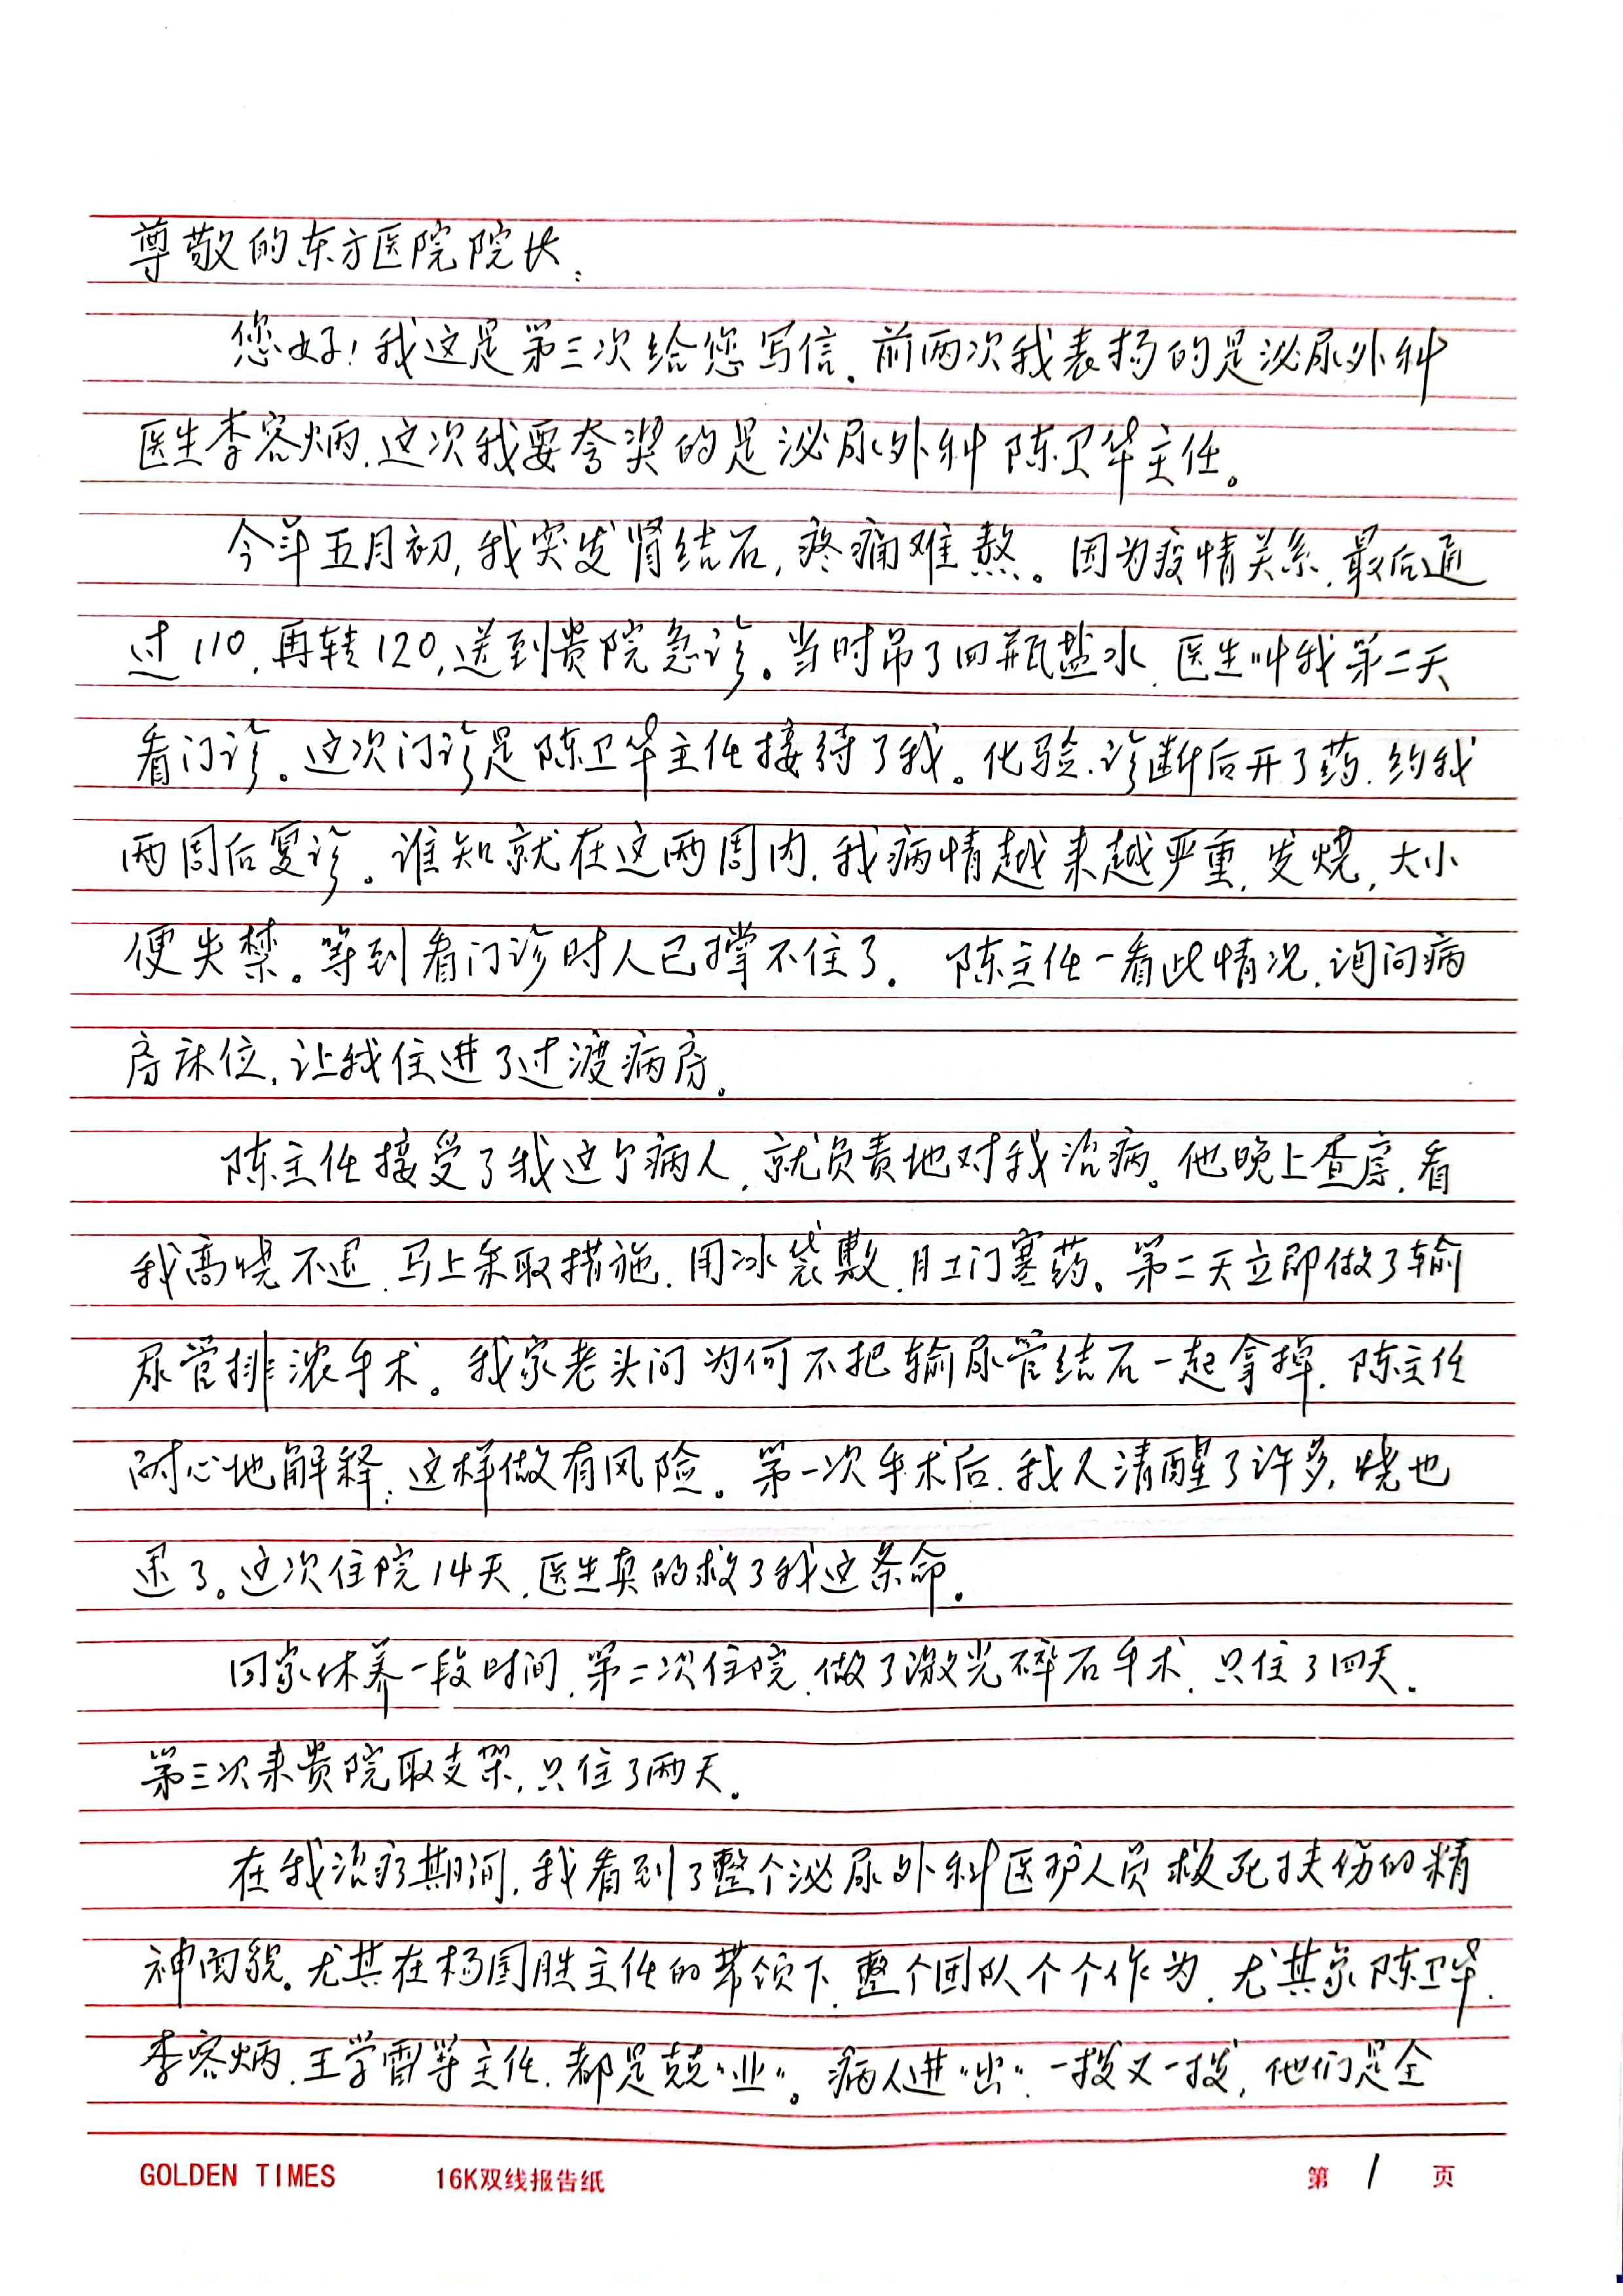 尊敬的东方医院院长：
您好！我这是第三次给您写信。前两次我表扬的是泌尿外科
医生李容炳，这次我要夸奖的是泌尿外科陈卫华主任。
今年五月初，我突发肾结石，疼痛难熬。因为疫情关系，最后通
过110，再转120，送到贵院急诊。当时吊了四瓶盐水，医生叫我第二天
看门诊。这次门诊是陈卫华主任接待了我。化验、诊断后开了药，约我
两周后复诊。谁知就在这两周内，我病情越来越严重，发烧，大小
便失禁。等到看门诊时人已撑不住了。陈主任一看此情况，询问病
房床位，让我住进了过渡病房。
陈主任接受了我这个病人，就负责地对我治病。他晚上查房，看
我高烧不退，马上采取措施，用冰袋敷，肛门塞药。第二天立即做了输
尿管排浓手术。我家老头问为何不把输尿管结石一起拿掉，陈主任
耐心地解释：这样做有风险。第一次手术后，我人清醒了许多，烧也
退了。这次住院14天，医生真的救了我这条命。
回家休养一段时间，第二次住院，做了激光碎石手术，只住了四天。
第三次来贵院取支架，只住了两天。
在我治疗期间，我看到了整个泌尿外科医护人员救死扶伤的精
神面貌。尤其在杨国胜主任的带领下，整个团队个个作为，尤其象陈卫华、
李容炳、王学雷等主任，都是兢兢"业"。病人进"出"，一拨又一拨，他们是全
GOLDEN TIMES 16K双线报告纸 第 1 页